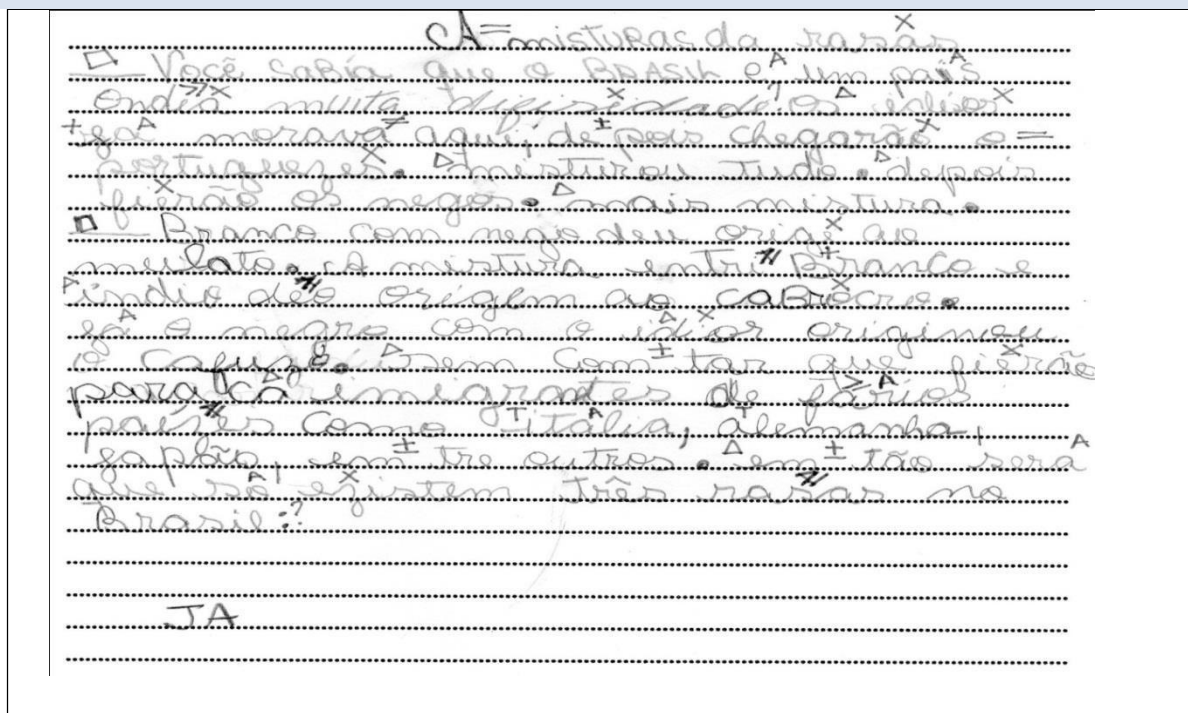 A = misturas da rasás
Você sabia que o BRASIL e, um país
ondia muita difircidade, os indios
ga morava aqui, de pois chegarão o =
portugueses. misturou tudo. depois
fierão os negos. mais mistura.
Branco com nego deu orige ao
mulato. A mistura entri Branco e
indio deo origem ao caBrocro.
gá o negro com o idior originou
o cafuso. sem com tar que fierão
para cá imigrantes de fários
paises como itália, alemanha,
gapão, em tre outros. em tão será
que só existem três rasas no
Brasil?
JA